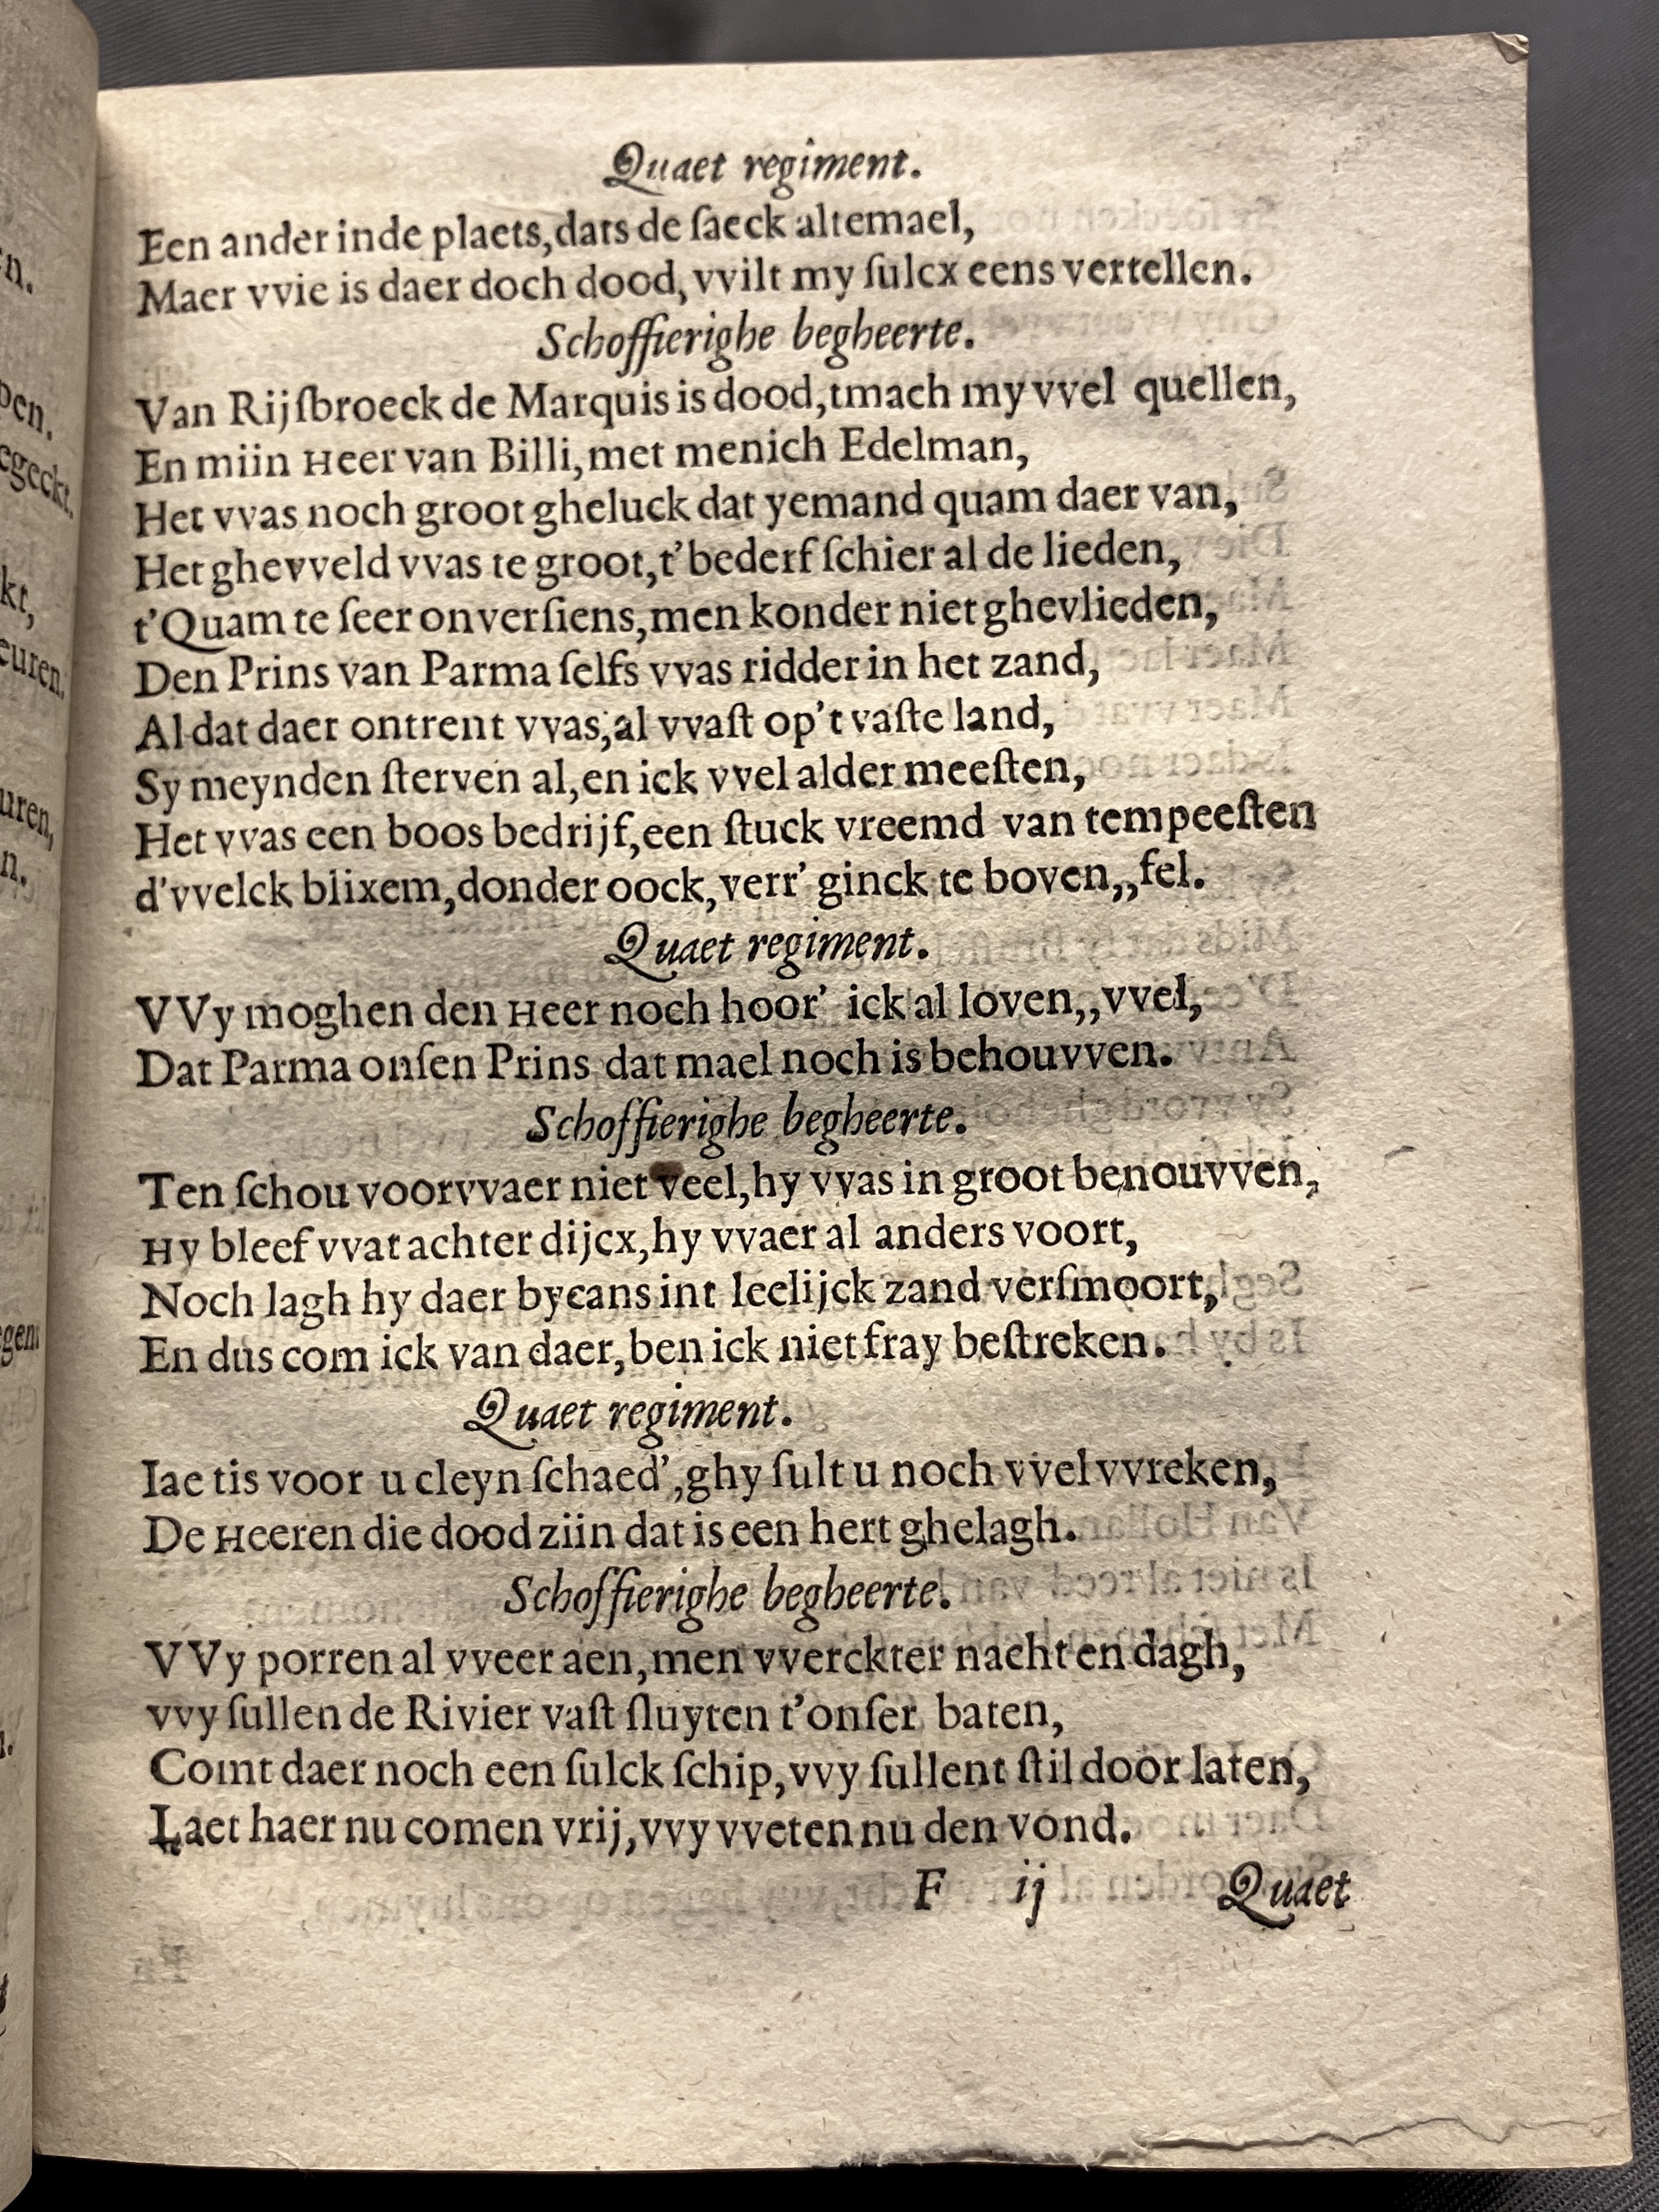 Quaet regiment.
Een ander inde plaets, dats de ſaeck altemael,
Maer vvie is daer doch dood, vvilt my ſulcx eens vertellen.
Schoffierighe begheerte.
Van Rijſbroeck de Marquis is dood, tmach my vvel quellen,
En miin Heer van Billi, met menich Edelman,
Het vvas noch groot gheluck dat yemand quam daer van,
Het ghevveld vvas te groot, t'bederf ſchier al de lieden,
t'Quam te ſeer onverſiens, men konder niet ghevlieden,
Den Prins van Parma ſelfs vvas ridder in het zand,
Al dat daer ontrent vvas, al vvaſt op't vaſte land,
Sy meynden ſterven al, en ick vvel alder meeſten,
Het vvas een boos bedrijf, een ſtuck vreemd van tempeeſten
d'vvelck blixem, donder oock, verr' ginck te boven,, fel.
Quaet regiment.
VVy moghen den Heer noch hoor' ick al loven,, vvel,
Dat Parma onſen Prins dat mael noch is behouvven.
Schoffierighe begheerte.
Ten ſchou voorvvaer niet veel, hy vvas in groot benouvven,
Hy bleef vvat achter dijcx, hy vvaer al anders voort,
Noch lagh hy daer bycans int leelijck zand verſmoort,
En dus com ick van daer, ben ick niet fray beſtreken.
Quaet regiment.
Iae tis voor u cleyn ſchaed', ghy ſult u noch vvel vvreken,
De Heeren die dood ziin dat is een hert ghelagh.
Schoffierighe begheerte.
VVy porren al vveer aen, men vverckter nacht en dagh,
vvy ſullen de Rivier vaſt ſluyten t'onſer baten,
Comt daer noch een ſulck ſchip, vvy ſullent ſtil door laten,
Laet haer nu comen vrij, vvy vveten nu den vond.
F ij Quaet